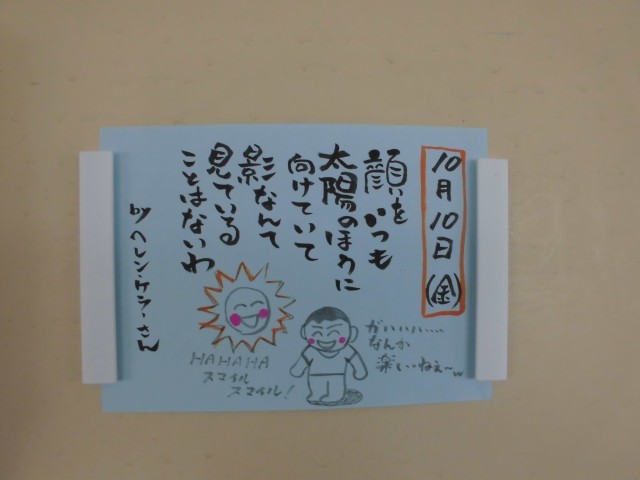 10月10日(金)
顔をいつも
太陽のほうに
向けていて
影なんて
見ている
ことはないわ
byヘレン・ケラーさん
HAHAHA
スマイル
スマイル!
ガハハハ……
なんか
楽しいねぇ〜w